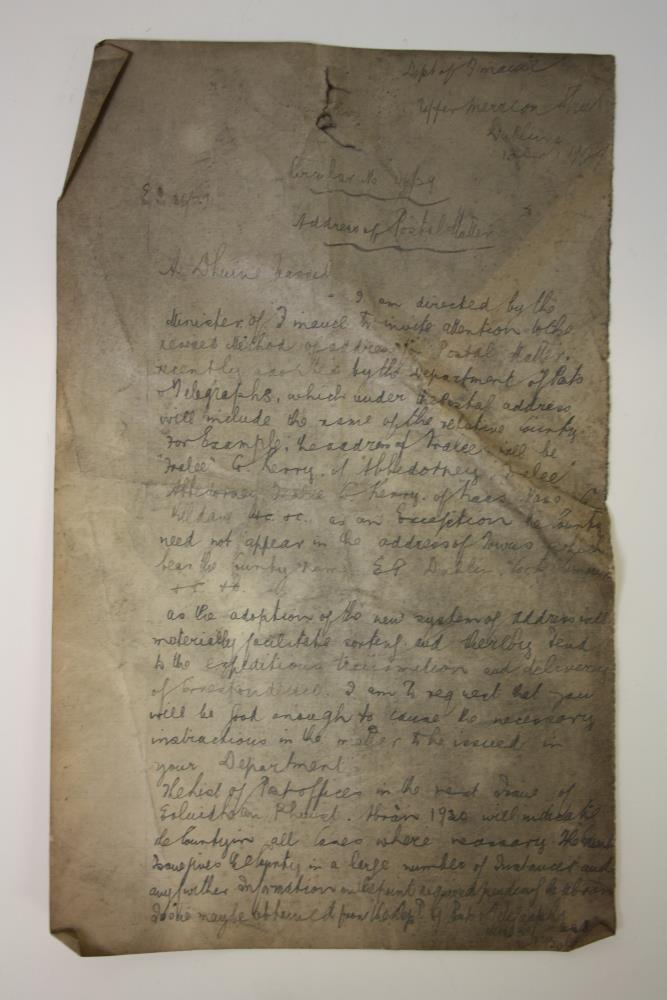 Dept of Finance
Upper Merrion Street
Dublin
Circular No 46/29
Address of Postal Matter
A Dhuine Uasail
I am directed by the
Minister of Finance to invite attention to the
revised method of addressing Postal Matter.
recently adopted by the Department of Posts
& Telegraphs, which under the Postal address
will include the name of the relative County
For Example, the address of Tralee will be
"Tralee" Co Kerry. of "Abbeydorney Tralee"
Abbeydorney Tralee Co Kerry. of Naas Naas Co
Kildare &c. &c. as an Exception the County
need not appear in the address of Towns which
bear the County name E.G Dublin,
&c &c.
as the adoption of the new system of address will
materially facilitate sorting and thereby tend
to the expeditious transmission and delivery
of Correspondence. I am to request that you
will be good enough to cause the necessary
instructions in the matter to be issued in
your Department.
The list of Post offices in the next Issue of
Eolaidhe an Phuist. 1930 will indicate
the County in all Cases where necessary The
Issue gives the County in a large number of Instances and
any further Information on the point required pending the
Issue may be obtained from the Dept of Posts & Telegraphs